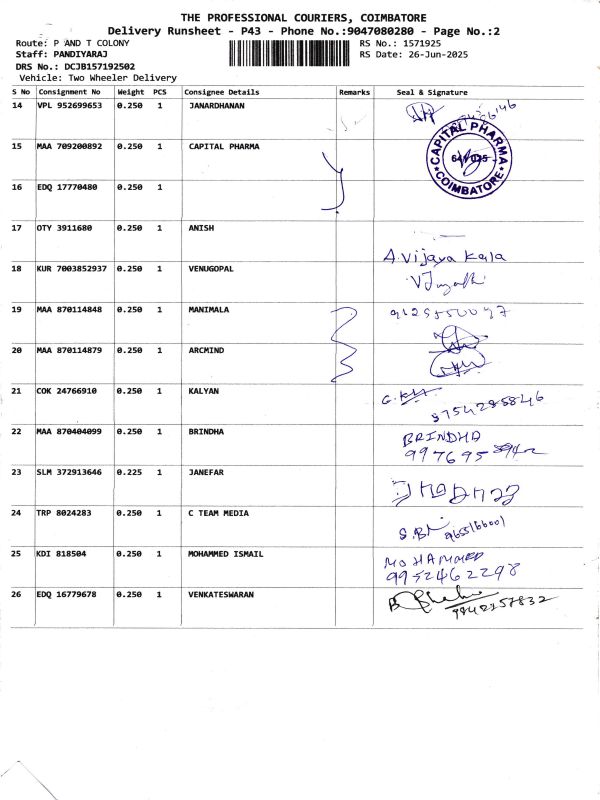 THE PROFESSIONAL COURIERS, COIMBATORE
Delivery Runsheet - P43 - Phone No.:9047080280 - Page No.:2
Route: P AND T COLONY RS No.: 1571925
Staff: PANDIYARAJ RS Date: 26-Jun-2025
DRS No.: DCJB157192502
Vehicle: Two Wheeler Delivery
S No Consignment No Weight PCS Consignee Details Remarks Seal & Signature
14 VPL 952699653 0.250 1 JANARDHANAN
15 MAA 709200892 0.250 1 CAPITAL PHARMA CAPITAL PHARMA COIMBATORE
16 EDQ 17770480 0.250 1
17 OTY 3911680 0.250 1 ANISH
A. Vijaya Kala
18 KUR 7003852937 0.250 1 VENUGOPAL
19 MAA 870114848 0.250 1 MANIMALA
20 MAA 870114879 0.250 1 ARCMIND
21 COK 24766910 0.250 1 KALYAN
8754285846
22 MAA 870404099 0.250 1 BRINDHA BRINDHA
23 SLM 372913646 0.225 1 JANEFAR
24 TRP 8024283 0.250 1 C TEAM MEDIA
25 KDI 818504 0.250 1 MOHAMMED ISMAIL MOHAMMED
9952462298
26 EDQ 16779678 0.250 1 VENKATESWARAN